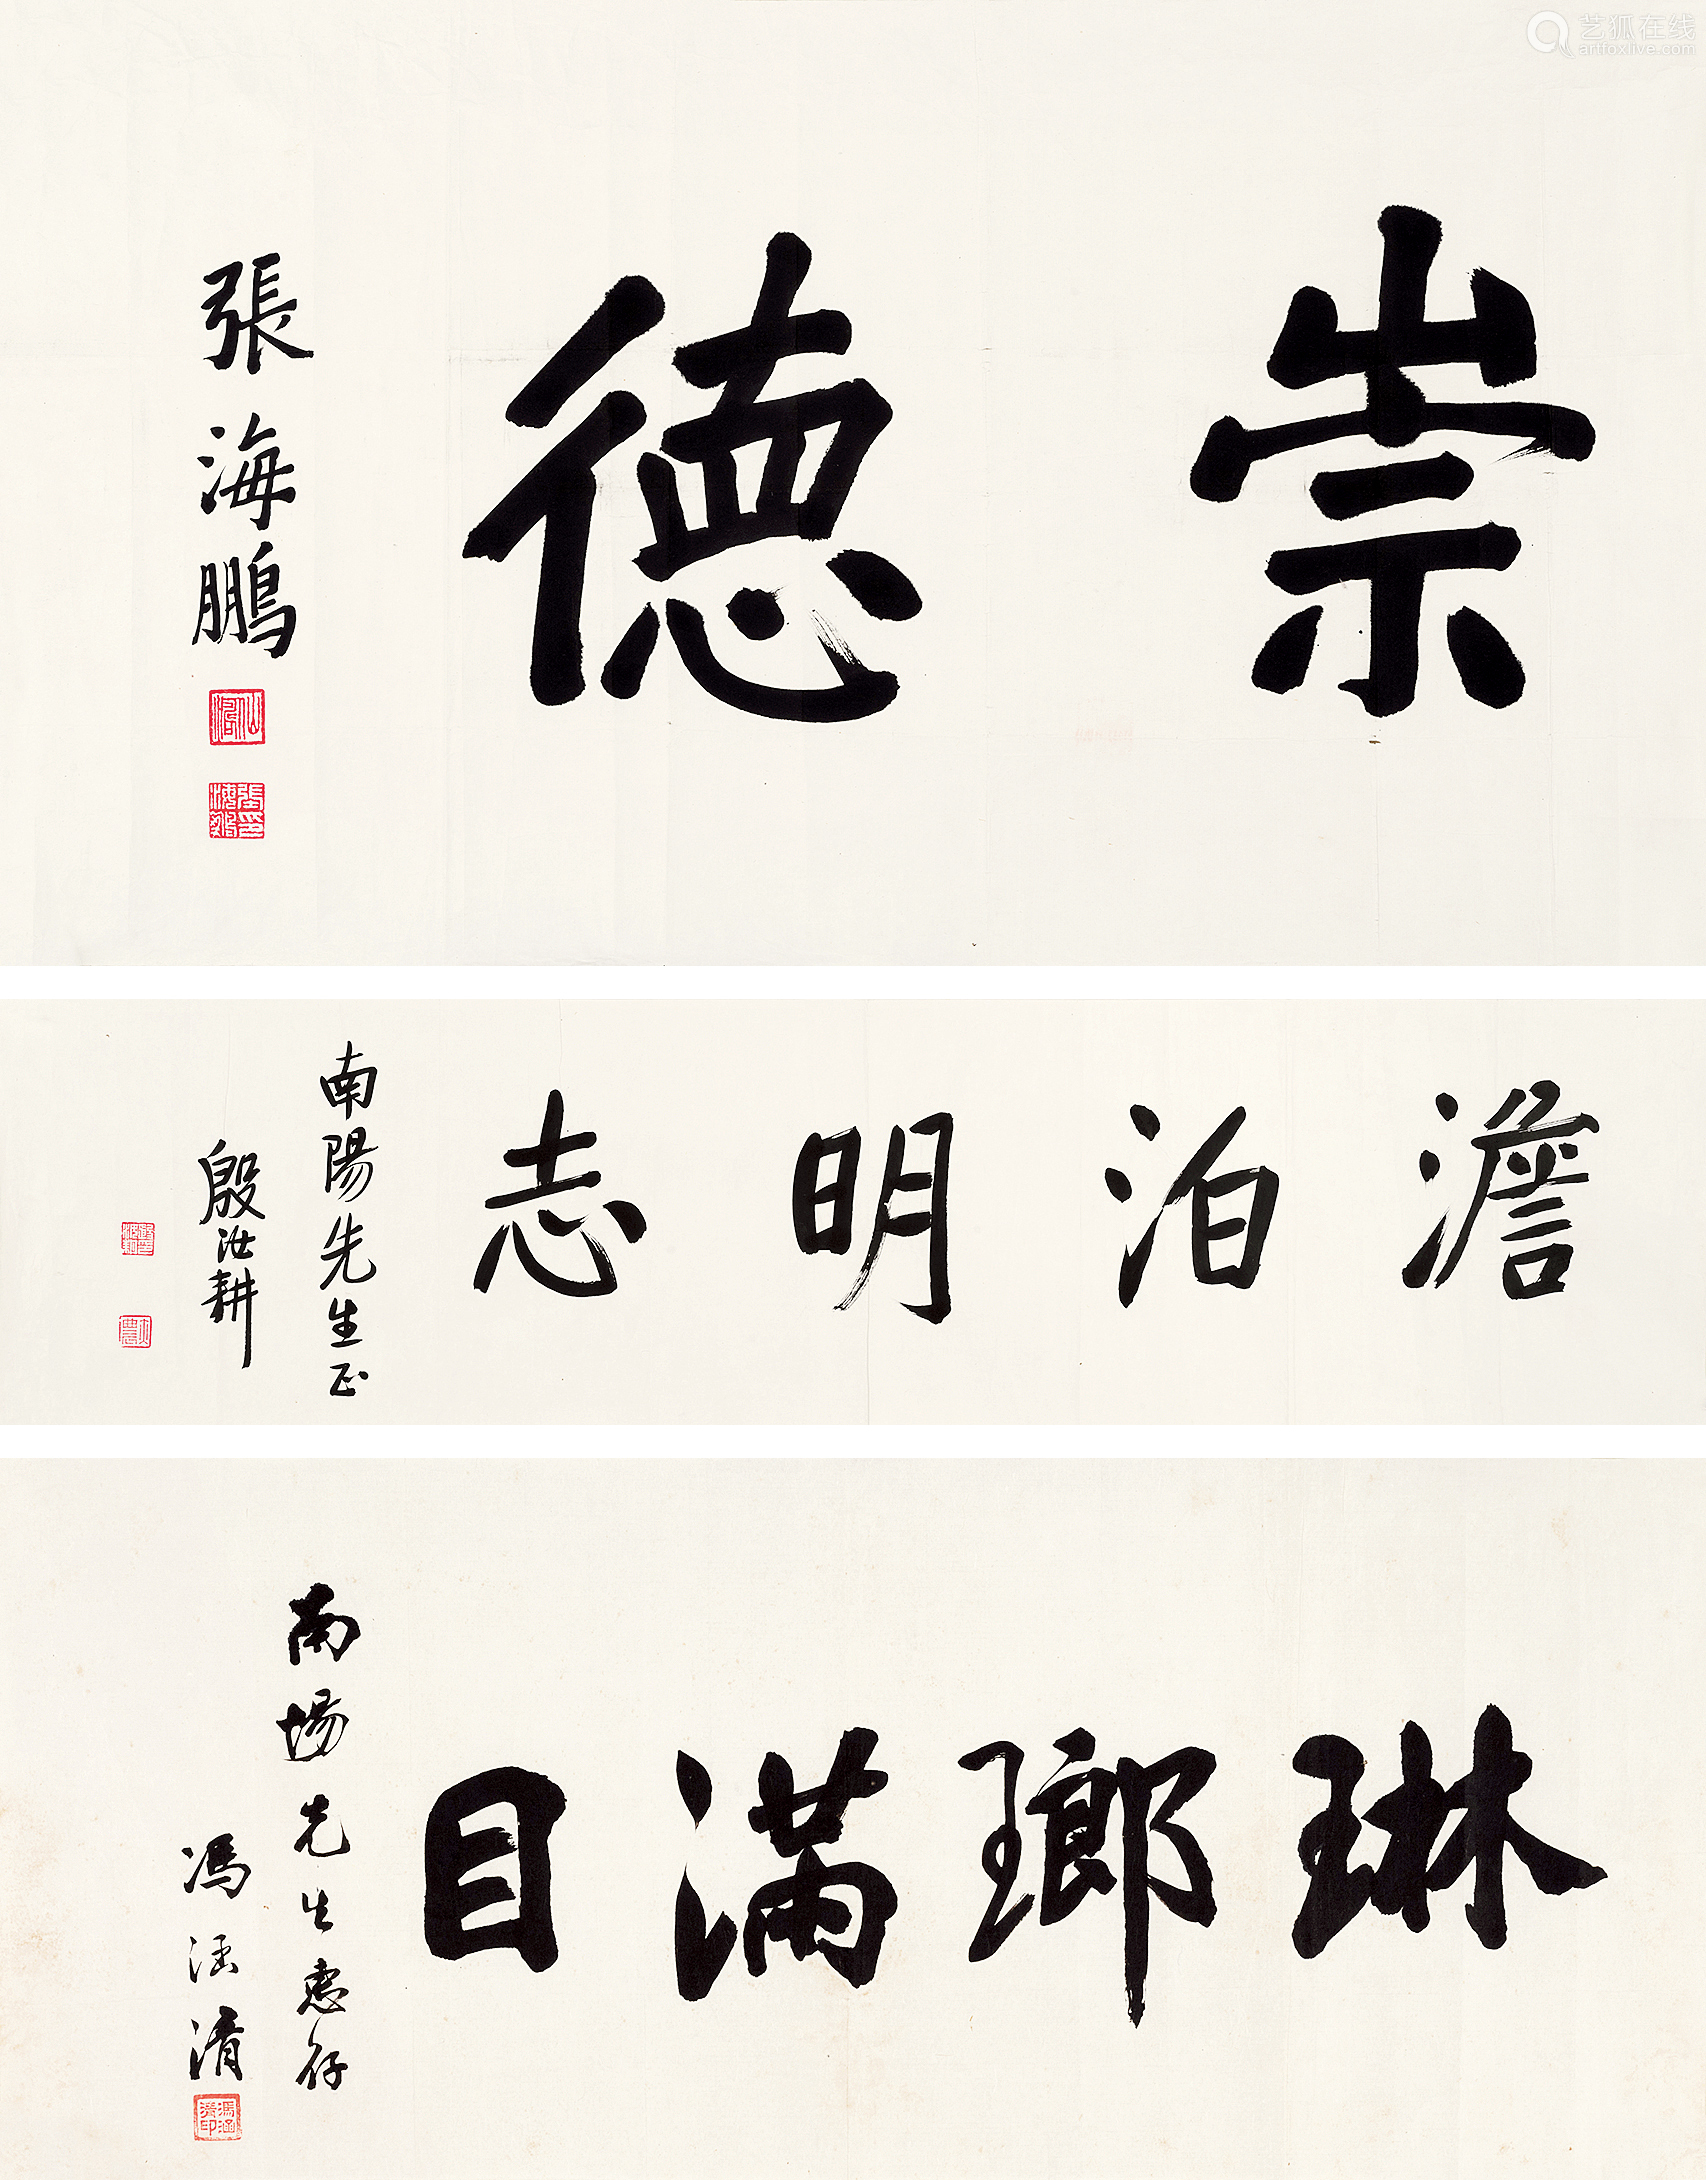 艺狐在线
artfoxlive.com
崇德
張海鵬
澹泊明志
南陽先生正
殷汝耕
琳瑯滿目
南場先生惠存
馮涵清